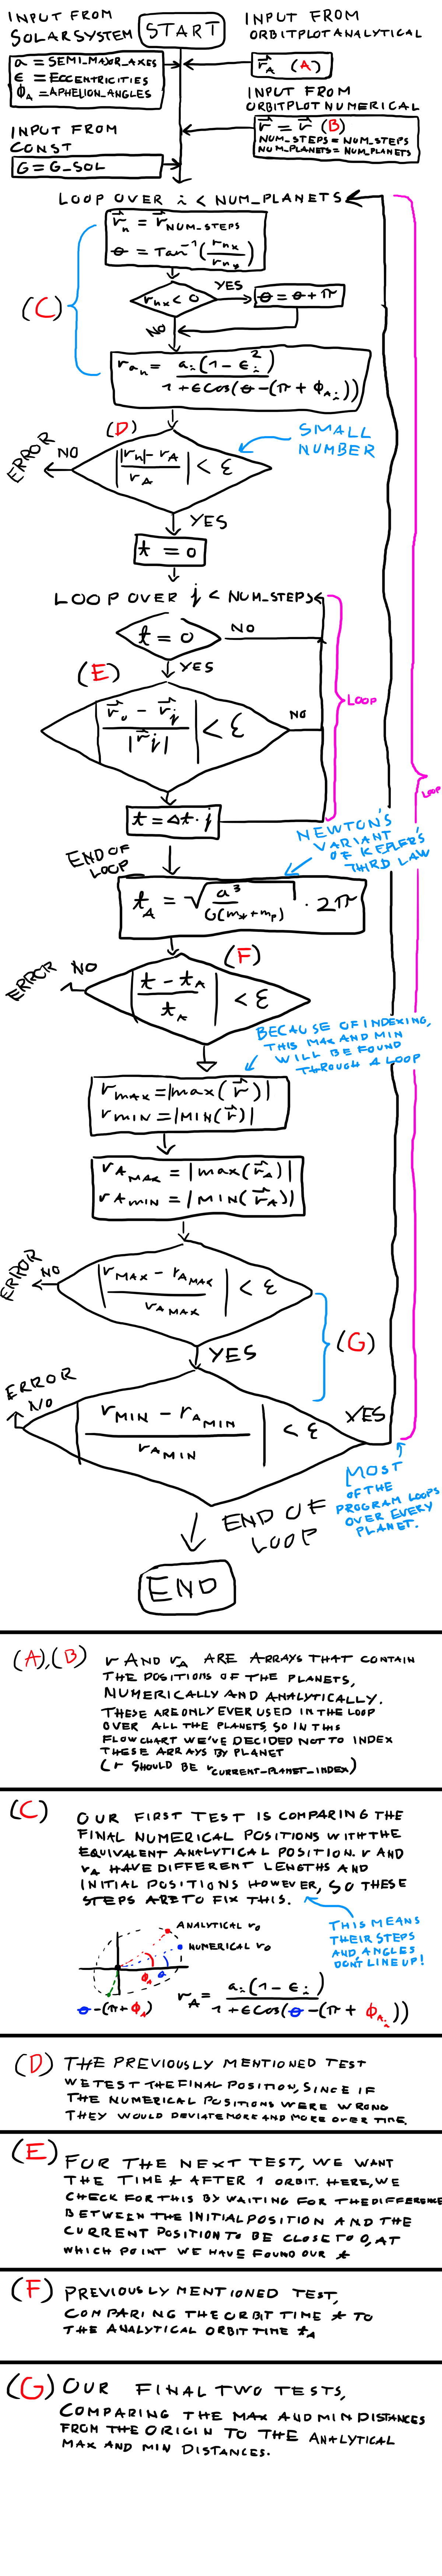 INPUT FROM
SOLARSYSTEM
START
INPUT FROM
ORBITPLOTANALYTICAL
a = SEMI_MAJOR_AXES
ϵ = ECCENTRICITIES
ϕA = APHELION_ANGLES
r⃗A (A)
INPUT FROM
ORBITPLOTNUMERICAL
r⃗ = r⃗ (B)
NUM_STEPS = NUM_STEPS
NUM_PLANETS = NUM_PLANETS
INPUT FROM
CONST
G = G_SOL
LOOP OVER i < NUM_PLANETS
r⃗n = r⃗NUM_STEPS
θ = Tan⁻¹(rnx/rny)
(C)
rnx < 0
YES
θ = θ + π
NO
ran = ai(1 - ϵi²) / 1 + ϵcos(θ - (π + ϕAi))
(D)
ERROR
NO
||rn| - rA / rA| < ε
SMALL
NUMBER
YES
t = 0
LOOP OVER j < NUM_STEPS
t = 0
NO
YES
(E)
|r⃗0 - r⃗j / |r⃗j|| < ε
NO
LOOP
LOOP
t = Δt · j
END OF
LOOP
NEWTON'S
VARIANT
OF KEPLER'S
THIRD LAW
tA = √(a³ / G(m* + mp)) · 2π
(F)
ERROR
NO
|t - tA / tA| < ε
BECAUSE OF INDEXING,
THIS MAX AND MIN
WILL BE FOUND
THROUGH A LOOP
rmax = |max(r⃗)|
rMIN = |MIN(r⃗)|
rAMAX = |max(r⃗A)|
rAMIN = |MIN(r⃗A)|
ERROR
NO
|rMAX - rAMAX / rAMAX| < ε
(G)
YES
ERROR
NO
|rMIN - rAMIN / rAMIN| < ε
YES
MOST
OF THE
PROGRAM LOOPS
OVER EVERY
PLANET.
END OF
LOOP
END
(A),(B) r AND rA ARE ARRAYS THAT CONTAIN
THE POSITIONS OF THE PLANETS,
NUMERICALLY AND ANALYTICALLY.
THESE ARE ONLY EVER USED IN THE LOOP
OVER ALL THE PLANETS, SO IN THIS
FLOWCHART WE'VE DECIDED NOT TO INDEX
THESE ARRAYS BY PLANET
(r SHOULD BE rCURRENT_PLANET_INDEX)
(C) OUR FIRST TEST IS COMPARING THE
FINAL NUMERICAL POSITIONS WITH THE
EQUIVALENT ANALYTICAL POSITION. r AND
rA HAVE DIFFERENT LENGTHS AND
INITIAL POSITIONS HOWEVER, SO THESE
STEPS ARE TO FIX THIS.
THIS MEANS
THEIR STEPS
AND ANGLES
DON'T LINE UP!
ANALYTICAL r0
NUMERICAL r0
ϕA θ
θ-(π+ϕA)
rA = ai(1 - ϵi) / 1 + ϵcos(θ - (π + ϕAi))
(D) THE PREVIOUSLY MENTIONED TEST
WE TEST THE FINAL POSITION, SINCE IF
THE NUMERICAL POSITIONS WERE WRONG
THEY WOULD DEVIATE MORE AND MORE OVER TIME.
(E) FOR THE NEXT TEST, WE WANT
THE TIME t AFTER 1 ORBIT. HERE, WE
CHECK FOR THIS BY WAITING FOR THE DIFFERENCE
BETWEEN THE INITIAL POSITION AND THE
CURRENT POSITION TO BE CLOSE TO 0, AT
WHICH POINT WE HAVE FOUND OUR t
(F) PREVIOUSLY MENTIONED TEST,
COMPARING THE ORBIT TIME t TO
THE ANALYTICAL ORBIT TIME tA
(G) OUR FINAL TWO TESTS,
COMPARING THE MAX AND MIN DISTANCES
FROM THE ORIGIN TO THE ANALYTICAL
MAX AND MIN DISTANCES.